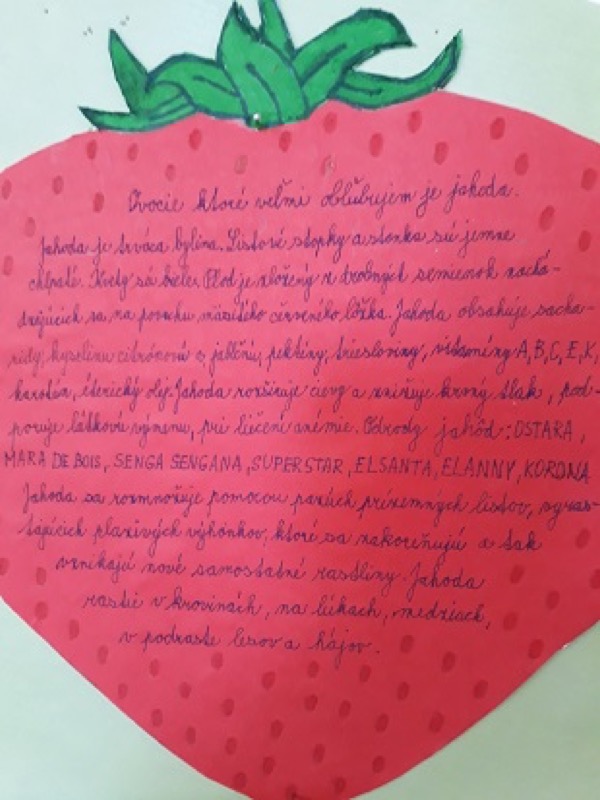 Ovocie ktoré veľmi obľubujem je jahoda.
Jahoda je trváca bylina. Listové stopky a stonka sú jemne
chlpaté. Kvety sú biele. Plod je zložený z drobných semienok nachá-
dzajúcich sa na povrchu mäsitého červeného lôžka. Jahoda obsahuje sacha-
ridy, kyselinu citrónovú a jablčnú, pektíny, triesloviny, vitamíny A, B, C, E, K,
karotén, éterický olej. Jahoda rozširuje cievy a znižuje krvný tlak, pod-
poruje látkovú výmenu, pri liečení anémie. Odrody jahôd: OSTARA,
MARA DE BOIS, SENGA SENGANA, SUPERSTAR, ELSANTA, ELANNY, KORONA
Jahoda sa rozmnožuje pomocou pazúch prízemných listov, vyras-
tajúcich plazivých výhonkov, ktoré sa zakoreňujú a tak
vznikajú nové samostatné rastliny. Jahoda
rastie v krovinách, na lúkach, medziach,
v podraste lesov a hájov.